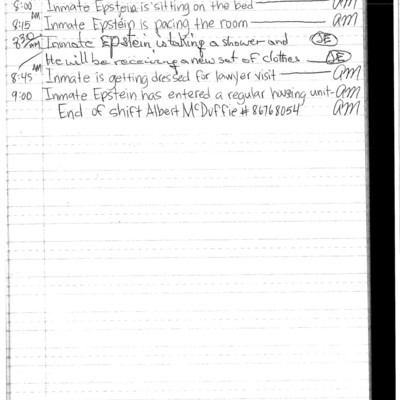 8:00 AM Inmate Epstein is sitting on the bed am
8:15 AM Inmate Epstein is pacing the room am
8:30 AM Inmate Epstein is taking a shower and JE
He will be receiving a new set of clothes JE
8:45 AM Inmate is getting dressed for lawyer visit am
9:00 Inmate Epstein has entered a regular housing unit am
End of shift Albert McDuffie #86768054 am